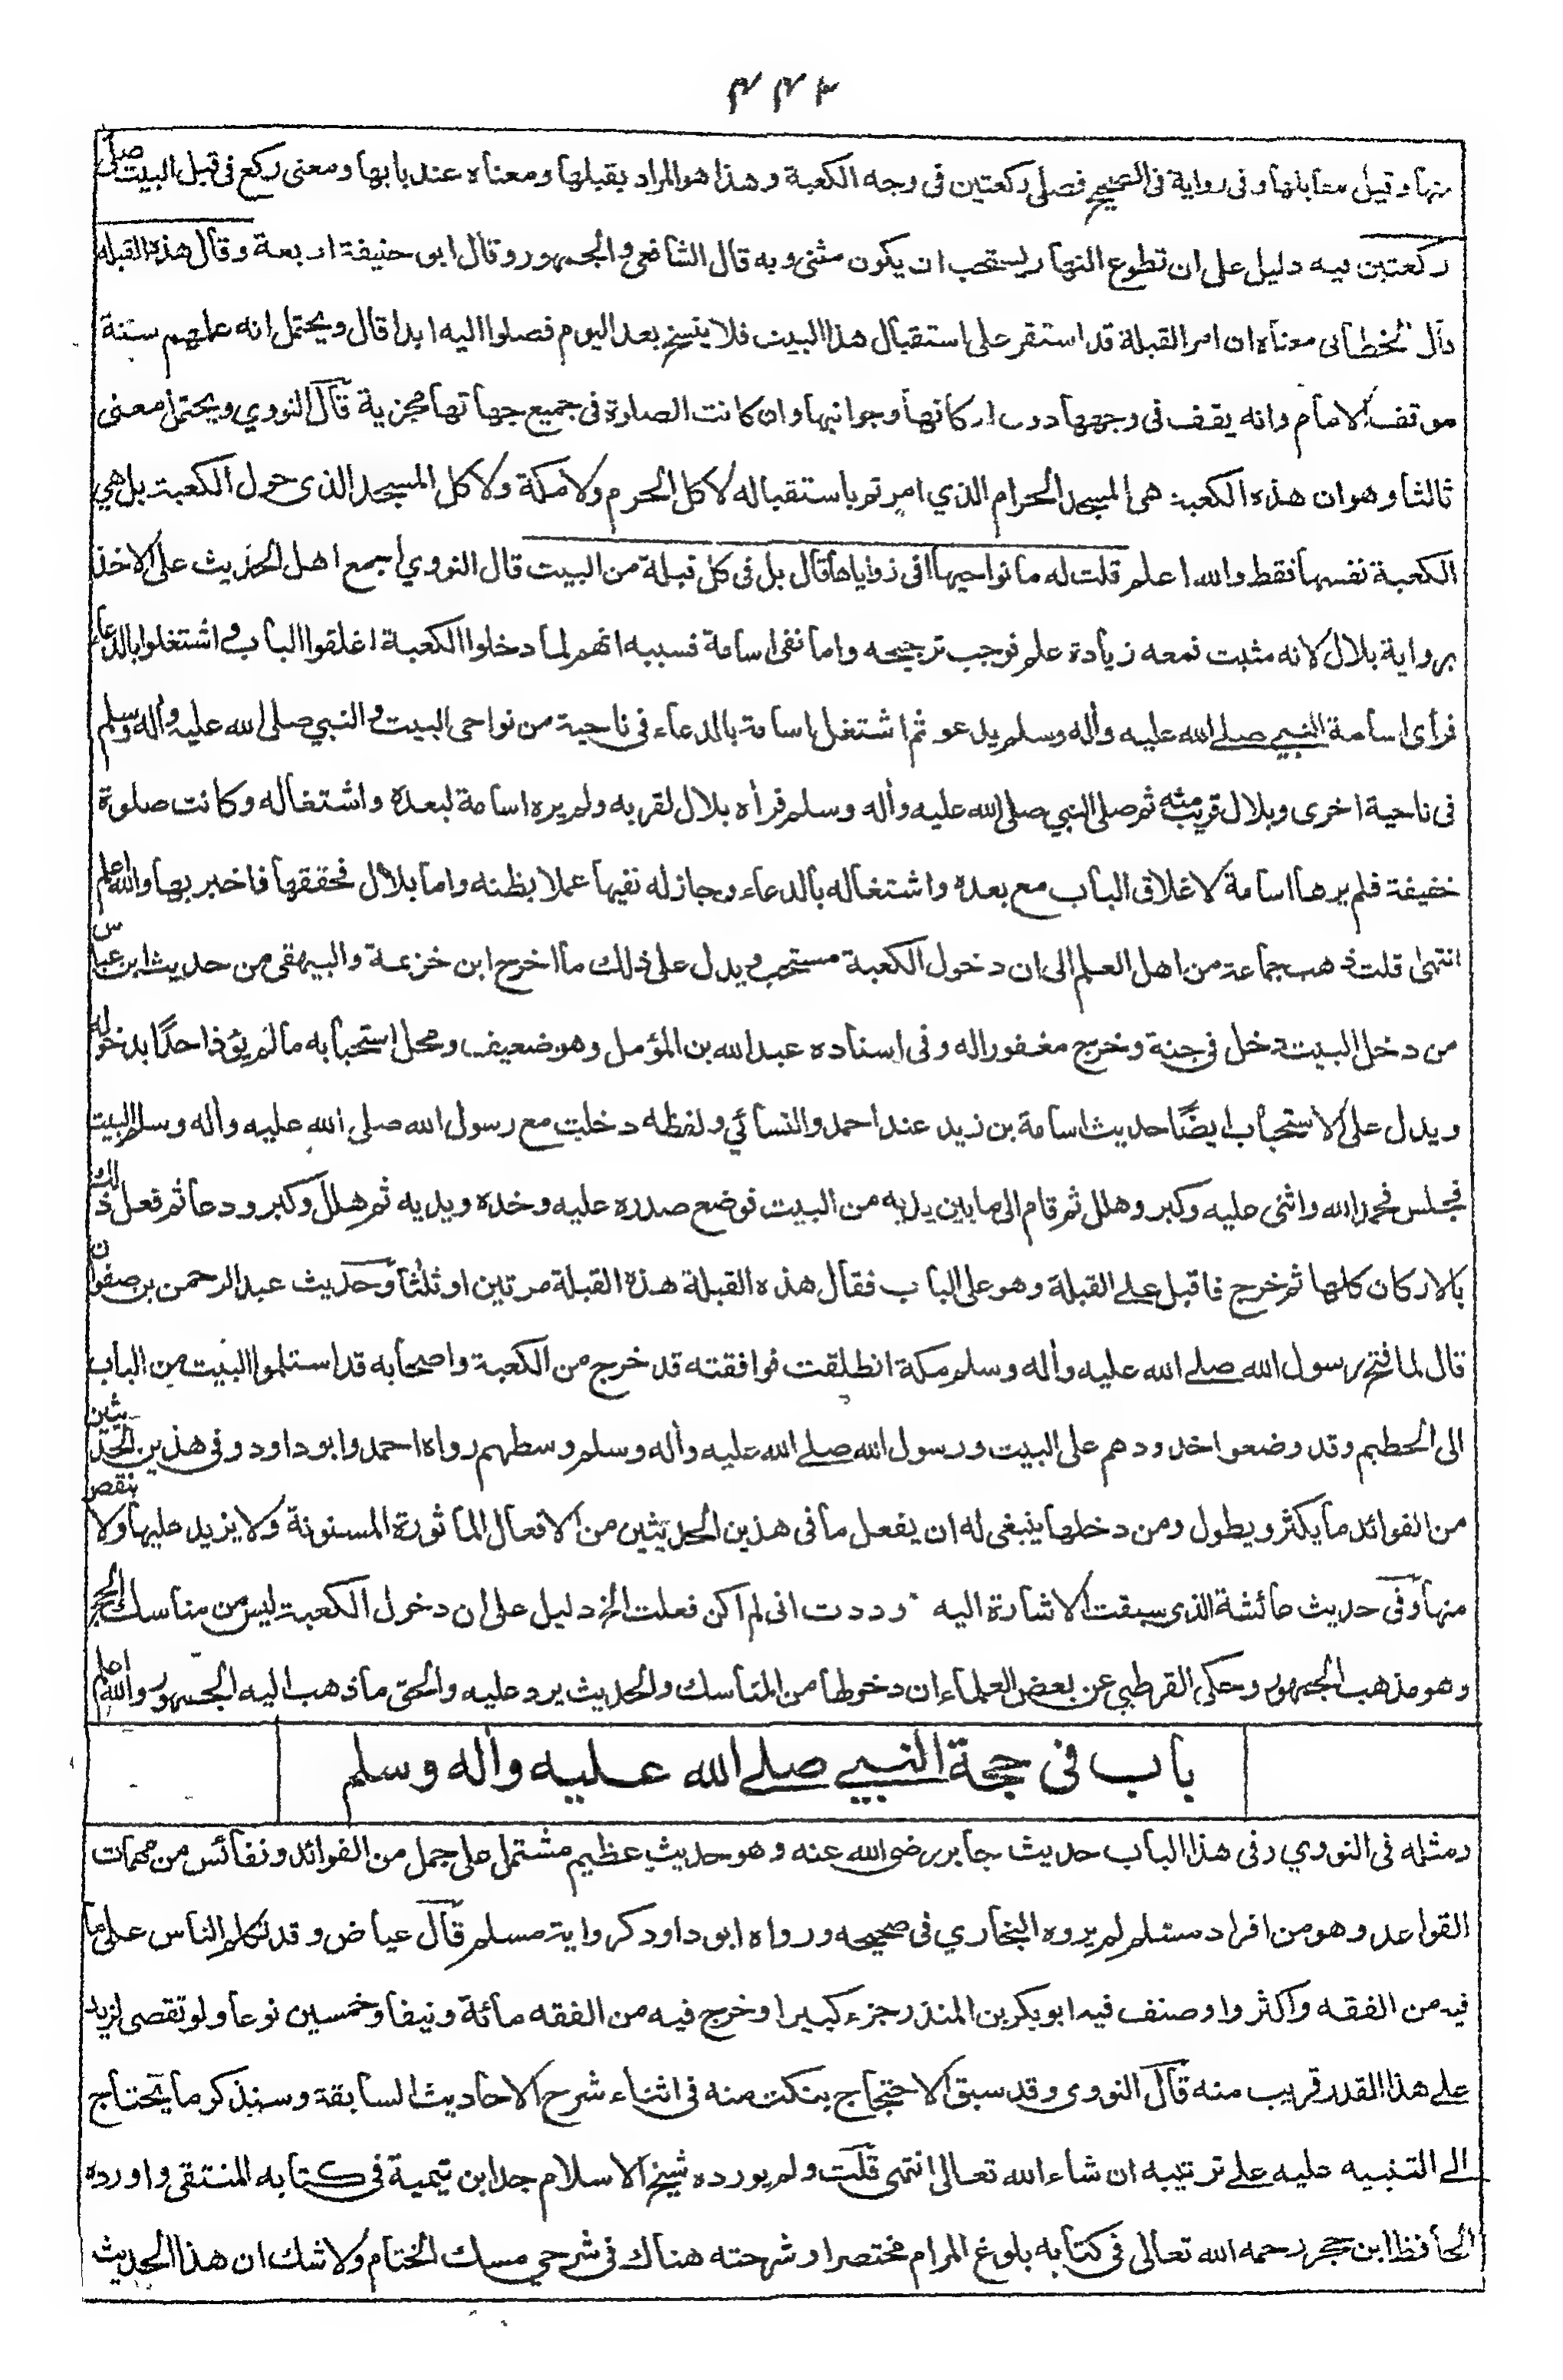 ٤٤٣
منها وقيل مقابلها وفى رواية فى الصحيح فصلى ركعتين فى وجه الكعبة وهذا هو المراد بقبلها ومعناه عند بابها ومعنى ركع فى قبل البيت صلى
ركعتين فيه دليل على ان تطوع النهار يستحب ان يكون مثنى وبه قال الشافعي والجمهور وقال ابو حنيفة اربعة وقال هذه القبلة
قال الخطابى معناه ان امر القبلة قد استقر على استقبال هذا البيت فلا ينسخ بعد اليوم فصلوا اليه ابدا قال ويحتمل انه علمهم سنة
موقف الامام وانه يقف فى وجهها دون اركانها وجوانبها وان كانت الصلوة فى جميع جهاتها مجزية قال النووي ويحتمل معنى
ثالثا وهو ان هذه الكعبة هى المسجد الحرام الذي امرتم باستقباله لا كل الحرم ولا مكة ولا كل المسجد الذى حول الكعبة بل هي
الكعبة نفسها فقط والله اعلم قلت له ما نواحيها افى زواياها قال بل فى كل قبلة من البيت قال النووي اجمع اهل الحديث على الاخذ
برواية بلال لانه مثبت فمعه زيادة علم فوجب ترجيحه واما نفى اسامة فسببه انهم لما دخلوا الكعبة اغلقوا الباب واشتغلوا بالدعاء
فرأى اسامة النبي صلے الله عليه وأله وسلم يدعو ثم اشتغل اسامة بالدعاء فى ناحية من نواحى البيت والنبي صلى الله عليه وأله وسلم
فى ناحية اخرى وبلال قريب منه ثم صلى النبي صلى الله عليه وأله وسلم فرأه بلال لقربه ولم يره اسامة لبعده واشتغاله وكانت صلوة
خفيفة فلم يرها اسامة لاغلاق الباب مع بعده واشتغاله بالدعاء وجاز له نفيها عملا بظنه واما بلال فحققها فاخبر بها والله اعلم
انتهى قلت ذهب جماعة من اهل العلم الى ان دخول الكعبة مستحب ويدل على ذلك ما اخرج ابن خزيمة والبيهقى من حديث ابن عباس
من دخل البيت دخل فى جنة وخرج مغفورا له وفى اسناده عبد الله بن المؤمل وهو ضعيف ومحل استحبابه ما لم يؤذ احدًا بدخوله
ويدل على الاستحباب ايضًا حديث اسامة بن زيد عند احمد والنسائي ولفظه دخلت مع رسول الله صلى الله عليه وأله وسلم البيت
فجلس فحمد الله واثنى عليه وكبر وهلل ثم قام الى ما بين يديه من البيت فوضع صدره عليه وخده ويديه ثم هلل وكبر ودعا ثم فعل ذلك
بالاركان كلها ثم خرج فاقبل علے القبلة وهو على الباب فقال هذه القبلة هذه القبلة مرتين او ثلثا وحديث عبد الرحمن بن صفوان
قال لما فتح رسول الله صلے الله عليه وأله وسلم مكة انطلقت فوافقته قد خرج من الكعبة واصحابه قد استلموا البيت من الباب
الى الحطيم وقد وضعوا خدودهم على البيت ورسول الله صلے الله عليه وأله وسلم وسطهم رواه احمد وابو داود وفى هذين الحديثين
من الفوائد ما يكثر ويطول ومن دخلها ينبغى له ان يفعل ما فى هذين الحديثين من الافعال الماثورة المسنونة ولا يزيد عليها ولا ينقص
منها وفى حديث عائشة الذى سبقت الاشارة اليه وددت انى لم اكن فعلت الخ دليل على ان دخول الكعبة ليس من مناسك الحج
وهو مذهب الجمهور وحكى القرطبي عن بعض العلماء ان دخولها من المناسك والحديث يرد عليه والحق ما ذهب اليه الجمهور والله اعلم
باب فى حجة النبي صلے الله عليه وأله وسلم
ومثله فى النووي وفى هذا الباب حديث جابر رضى الله عنه وهو حديث عظيم مشتمل على جمل من الفوائد ونفائس من مهمات
القواعد وهو من افراد مسلم لم يروه البخاري فى صحيحه ورواه ابو داود كرواية مسلم قال عياض وقد تكلم الناس على ما
فيه من الفقه واكثروا وصنف فيه ابو بكر بن المنذر جزء كبيرا وخرج فيه من الفقه مائة ونيفا وخمسين نوعا ولو تقصى لزيد
علے هذا القدر قريب منه قال النووى وقد سبق الاحتجاج بنكت منه فى اثناء شرح الاحاديث السابقة وسنذكر ما يحتاج
الے التنبيه عليه علے ترتيبه ان شاء الله تعالى انتهى قلت ولم يورده شيخ الاسلام جد ابن تيمية فى كتابه المنتقى واورده
الحافظ ابن حجر رحمه الله تعالى فى كتابه بلوغ المرام مختصرا وشرحته هناك فى شرحي مسك الختام ولا شك ان هذا الحديث